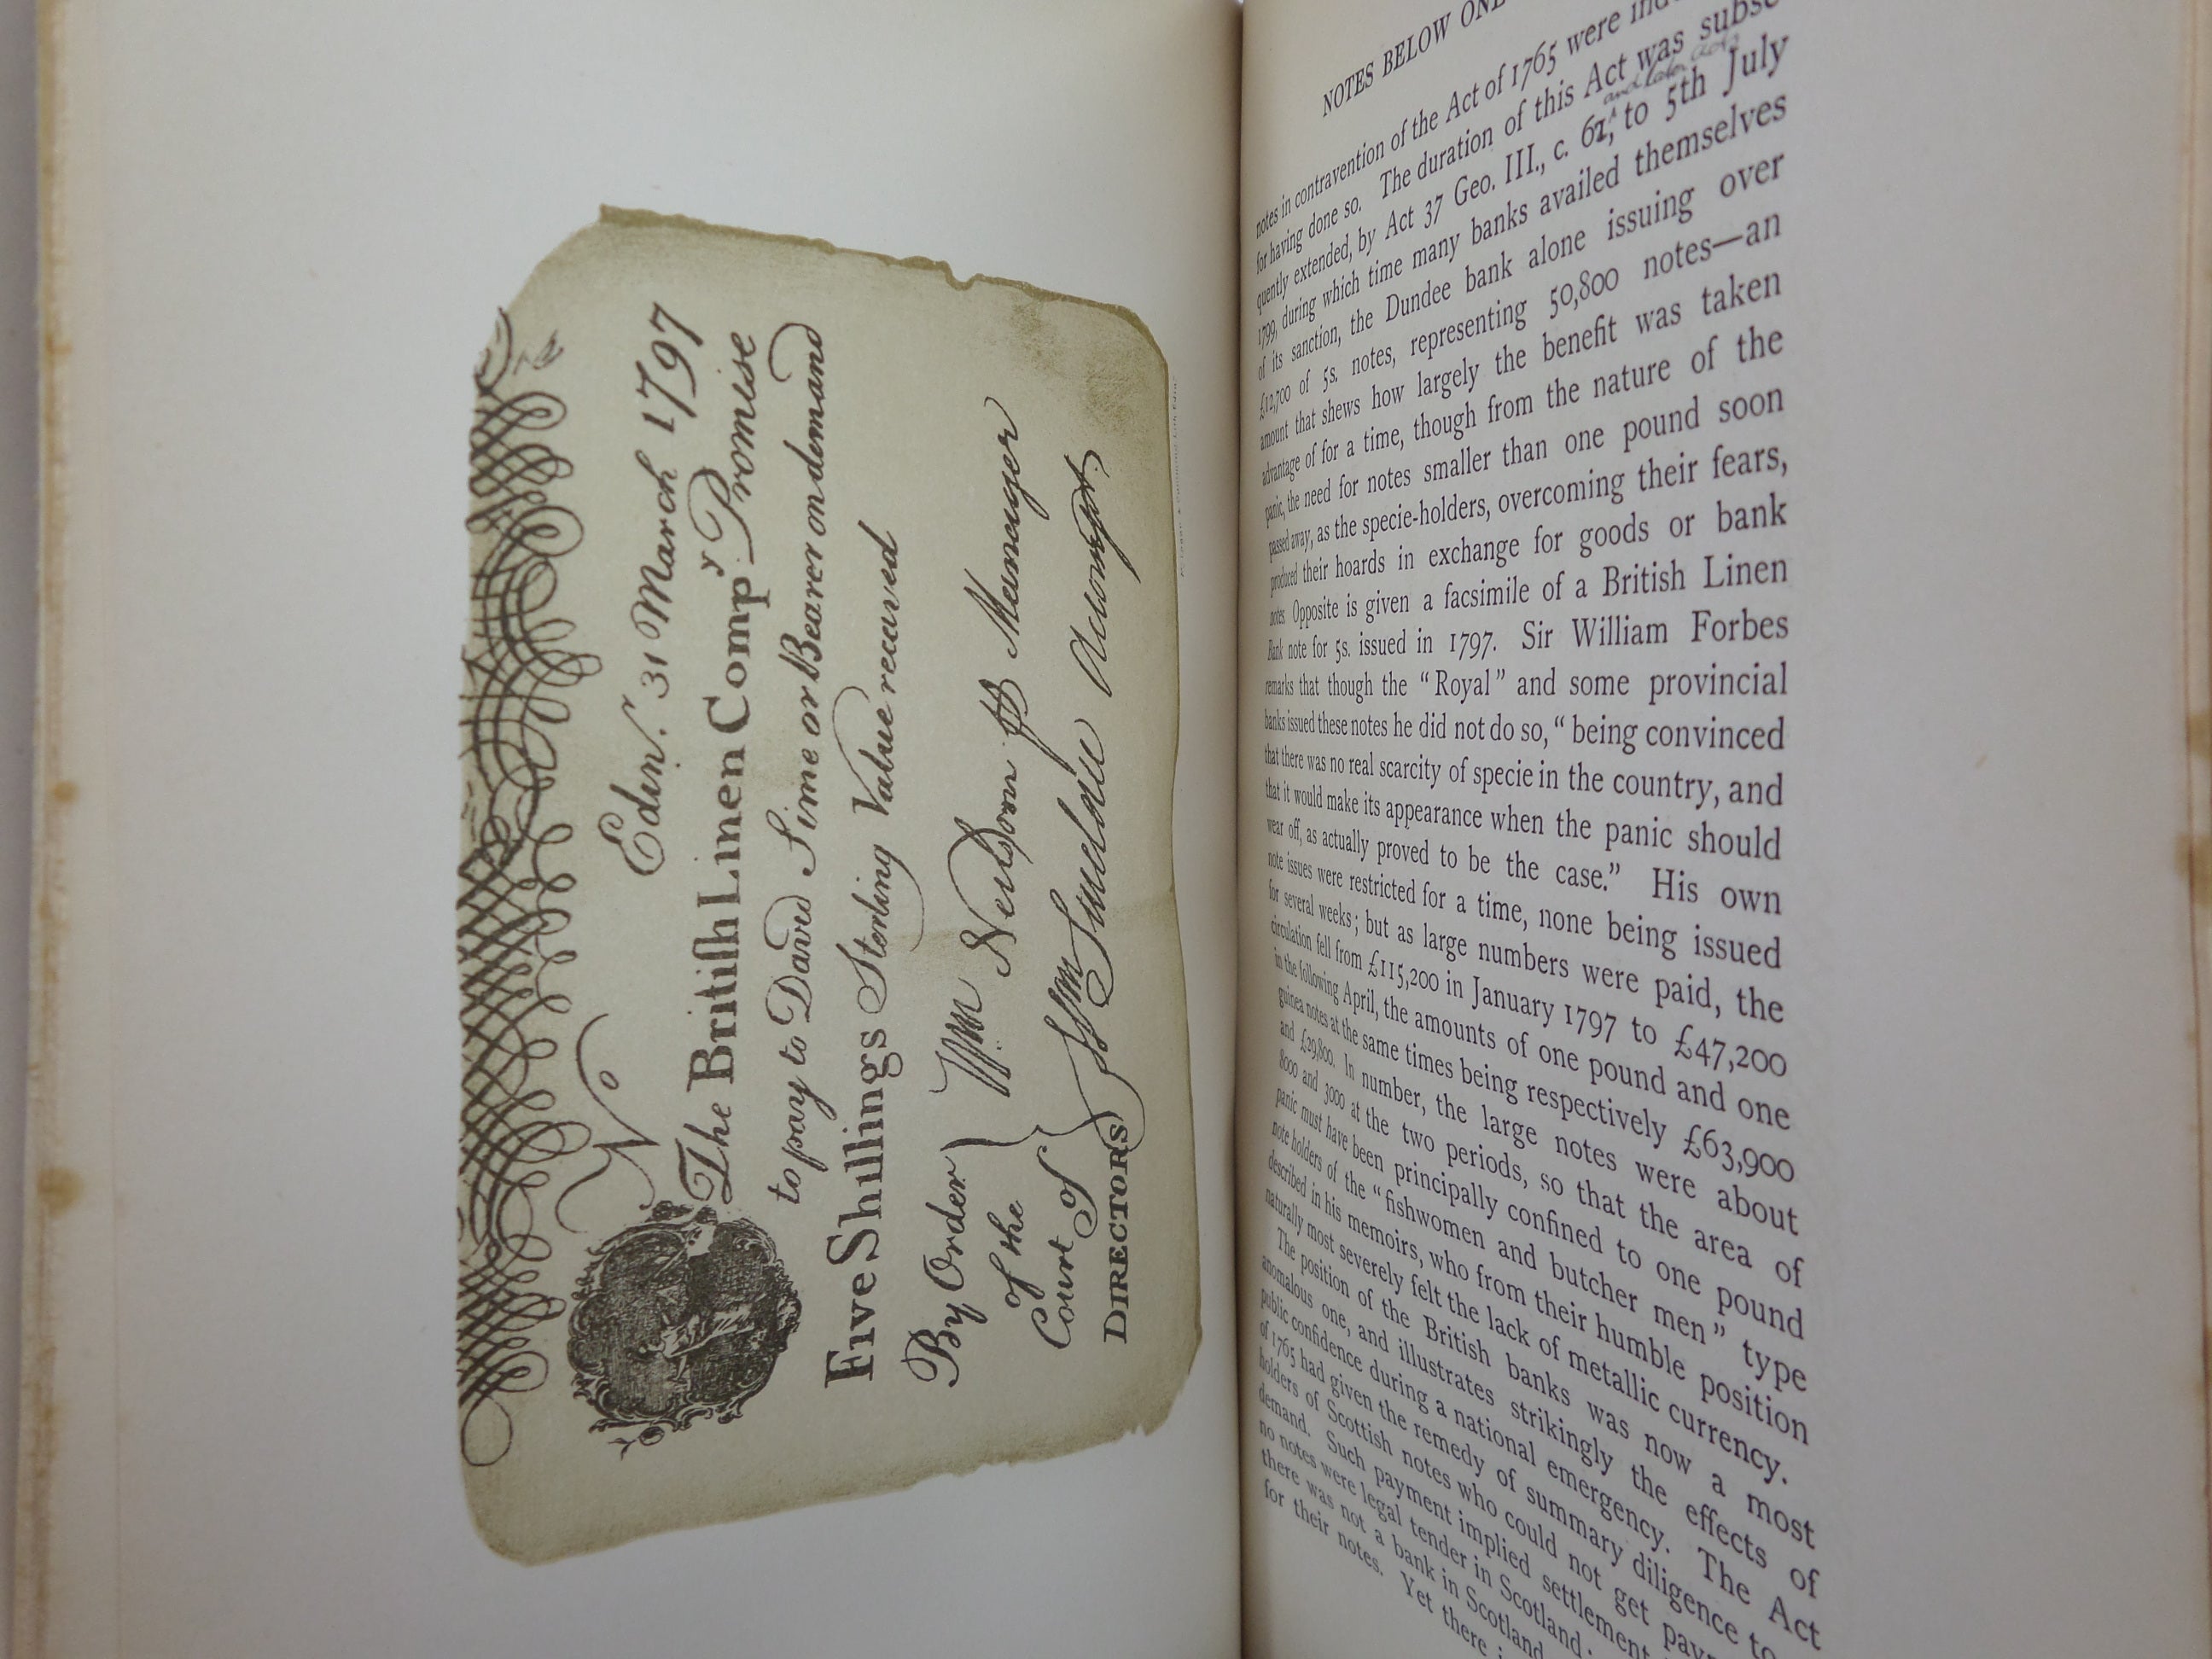 No
Edinr. 31 March 1797
The British Linen Compy Promise
to pay to David Sime or Bearer on demand
Five Shillings Sterling Value received
By Order
of the
Court of
DIRECTORS
Wm Neilson pr Mannager
Wm Accompt.
NOTES BELOW ONE
notes in contravention of the Act of 1765 were
for having done so. The duration of this Act was subse
and later acts
quently extended, by Act 37 Geo. III., c. 62, to 5th July
1799, during which time many banks availed themselves
of its sanction, the Dundee bank alone issuing over
£12,700 of 5s. notes, representing 50,800 notes—an
amount that shews how largely the benefit was taken
advantage of for a time, though from the nature of the
panic, the need for notes smaller than one pound soon
passed away, as the specie-holders, overcoming their fears,
produced their hoards in exchange for goods or bank
notes. Opposite is given a facsimile of a British Linen
Bank note for 5s. issued in 1797. Sir William Forbes
remarks that though the “Royal” and some provincial
banks issued these notes he did not do so, “being convinced
that there was no real scarcity of specie in the country, and
that it would make its appearance when the panic should
wear off, as actually proved to be the case.” His own
note issues were restricted for a time, none being issued
for several weeks; but as large numbers were paid, the
circulation fell from £115,200 in January 1797 to £47,200
in the following April, the amounts of one pound and one
guinea notes at the same times being respectively £63,900
and £29,800. In number, the large notes were about
8000 and 3000 at the two periods, so that the area of
panic must have been principally confined to one pound
note holders of the “fishwomen and butcher men” type
described in his memoirs, who from their humble position
naturally most severely felt the lack of metallic currency.
The position of the British banks was now a most
anomalous one, and illustrates strikingly the effects of
public confidence during a national emergency. The Act
of 1765 had given the remedy of summary diligence to
holders of Scottish notes who could not get
demand. Such payment implied settlement
no notes were legal tender in Scotland.
there was not a bank in Scotland
for their notes. Yet there